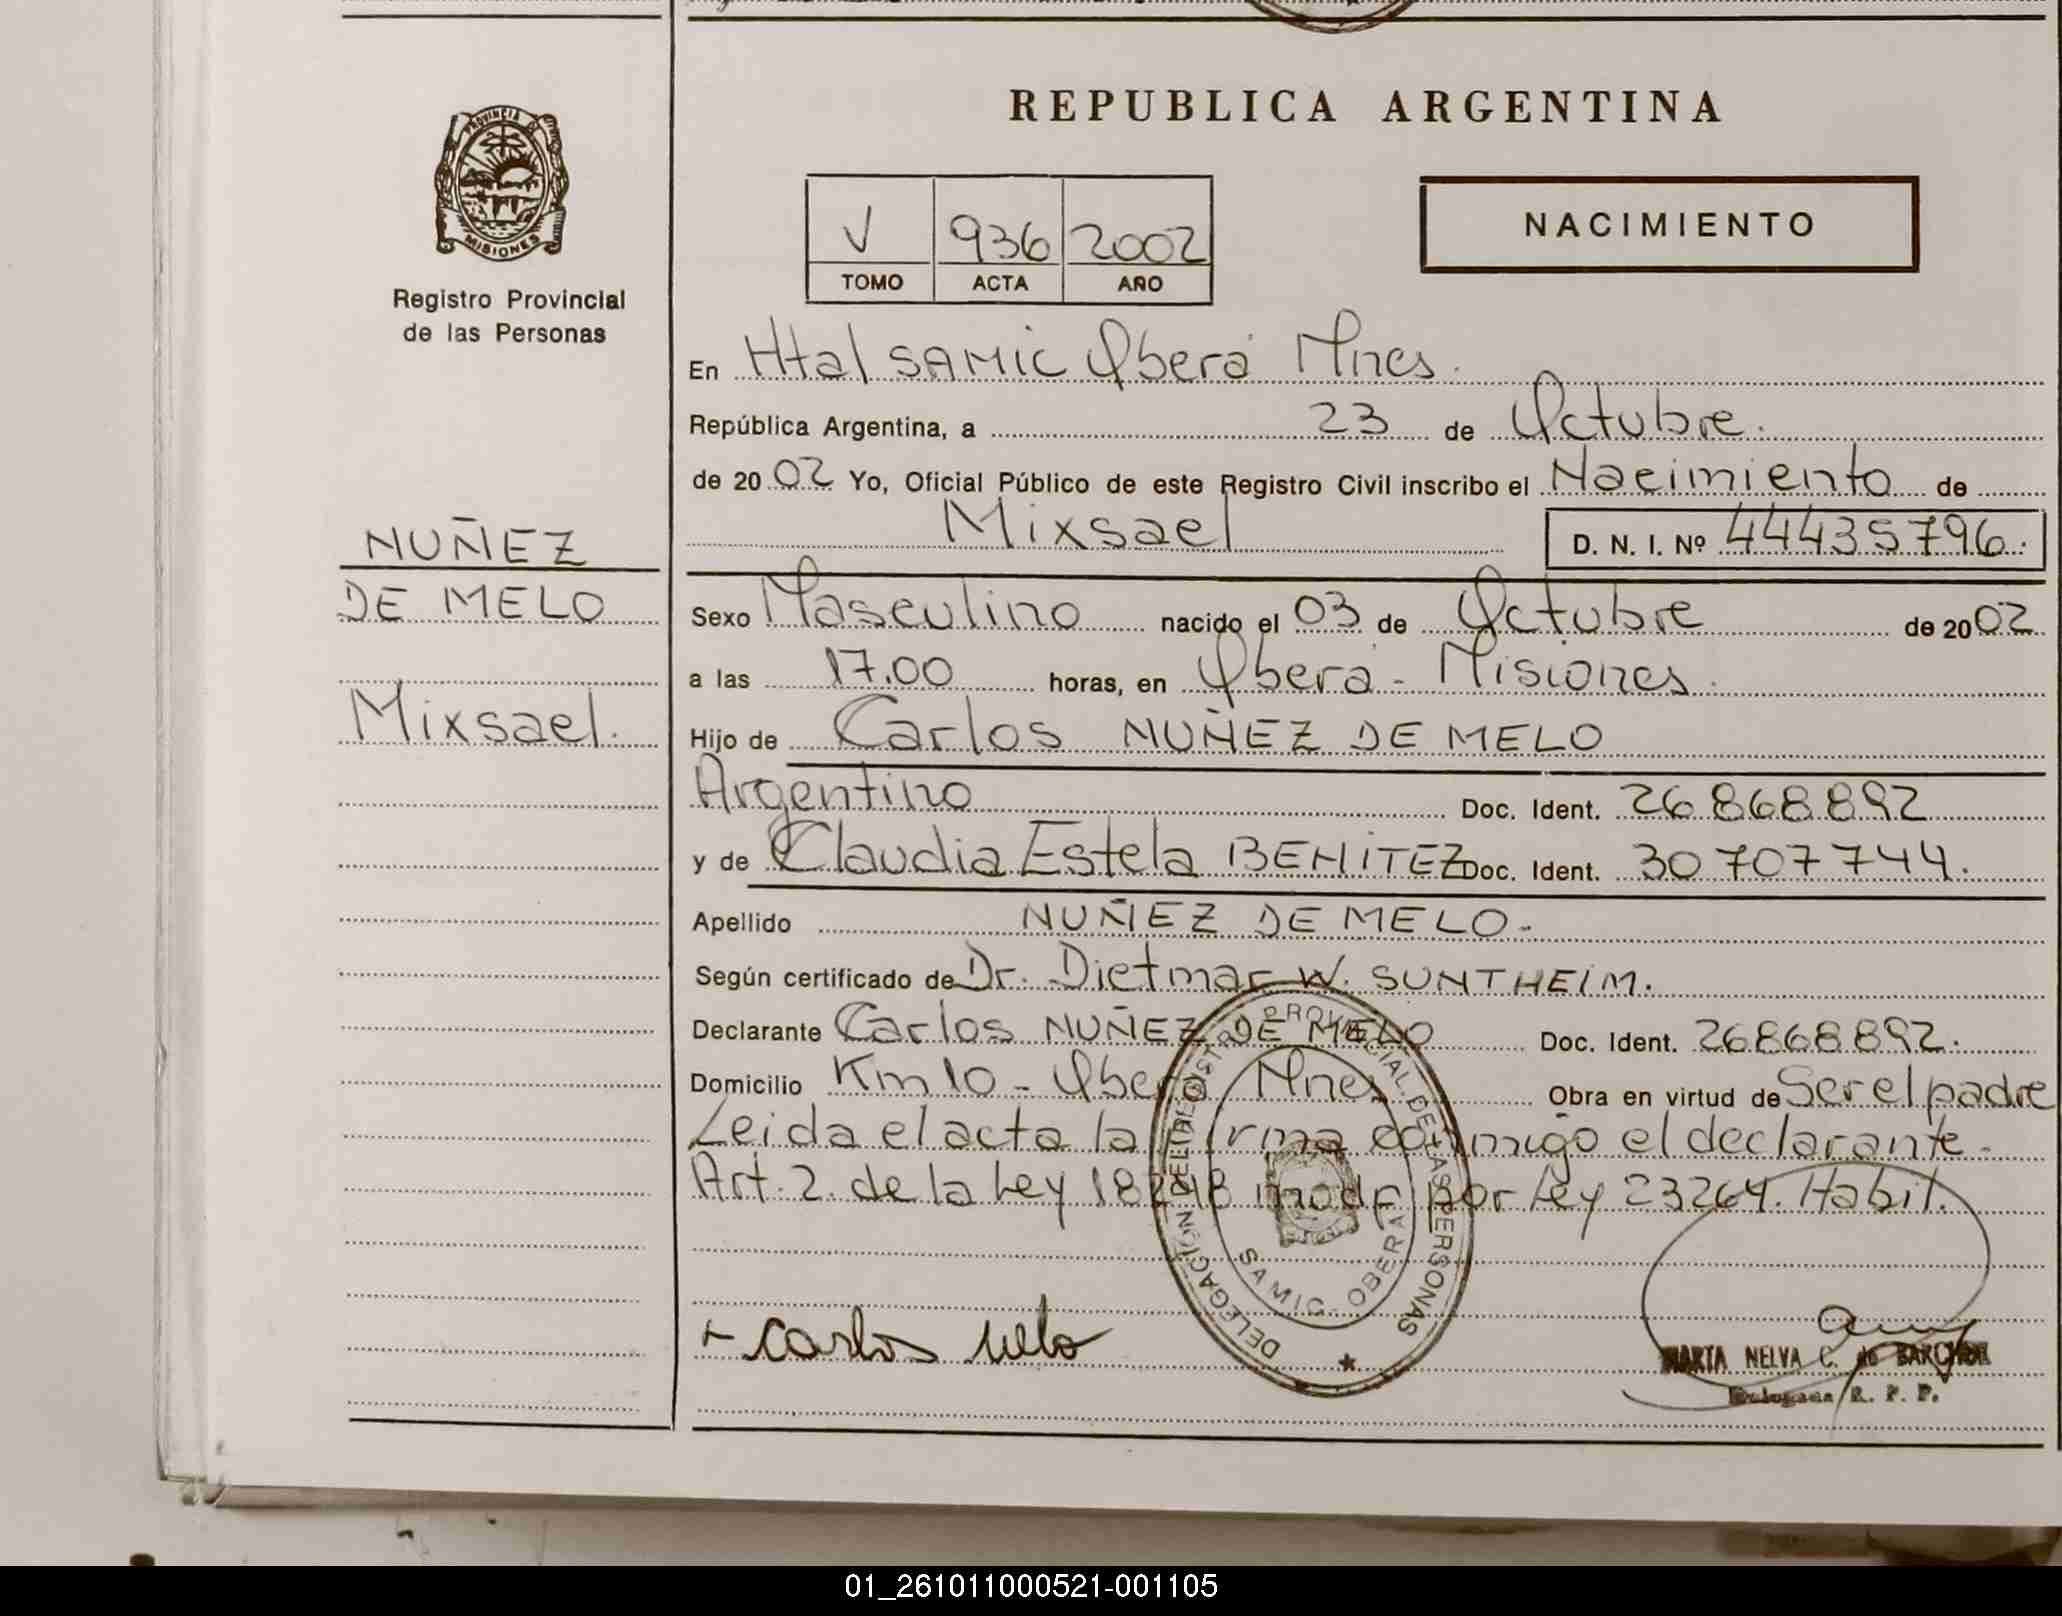 PROVINCIA DE
MISIONES
Registro Provincial
de las Personas
NUÑEZ
DE MELO
Mixsael.
REPUBLICA ARGENTINA
V 936 2002
TOMO ACTA AÑO
NACIMIENTO
En Htal SAMIC Oberá Mnes.
República Argentina, a 23 de Octubre.
de 2002 Yo, Oficial Público de este Registro Civil inscribo el Nacimiento de
Mixsael D. N. I. Nº 44435796.
Sexo Masculino nacido el 03 de Octubre de 2002
a las 17.00 horas, en Oberá - Misiones.
Hijo de Carlos NUÑEZ DE MELO
Argentino Doc. Ident. 26868892
y de Claudia Estela BENITEZ Doc. Ident. 30707744.
Apellido NUÑEZ DE MELO.
Según certificado de Dr. Dietmar W. SUNTHEIM.
Declarante Carlos NUÑEZ DE MELO Doc. Ident. 26868892.
Domicilio Km 10 - Oberá Mnes Obra en virtud de Ser el padre
Leida el acta la firma conmigo el declarante.
Art. 2. de la Ley 18248 modf por Ley 23264. Habil.
DELEGACIÓN DEL REGISTRO PROVINCIAL DE LAS PERSONAS
SAMIC - OBERA
Carlos Melo
MARTA NELVA C. de
Delegada R. P. P.
01_261011000521-001105